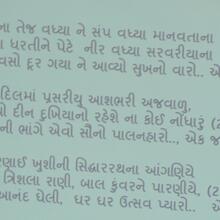 ના તેજ વધ્યા ને સંપ વધ્યા માનવતાના
ધરતીને પેટે નીર વધ્યા સરવરીયાના
વસો દૂર ગયા ને આવ્યો સુખનો વારો..
દિલમાં પ્રસરીયુ આશભરી અજવાળુ,
દીન દુખિયાનો રહેશે ના કોઈ નોંધારું
ની ભાંગે એવો સૌનો પાલનહારો.., એક જ
ખુશીની સિદ્ધારરથના આંગણિયે
ત્રિશલા રાણી, બાલ કુંવરને પારણીયે,
આનંદ ઘેલી, ઘર ઘર ઉત્સવ પ્યારો..